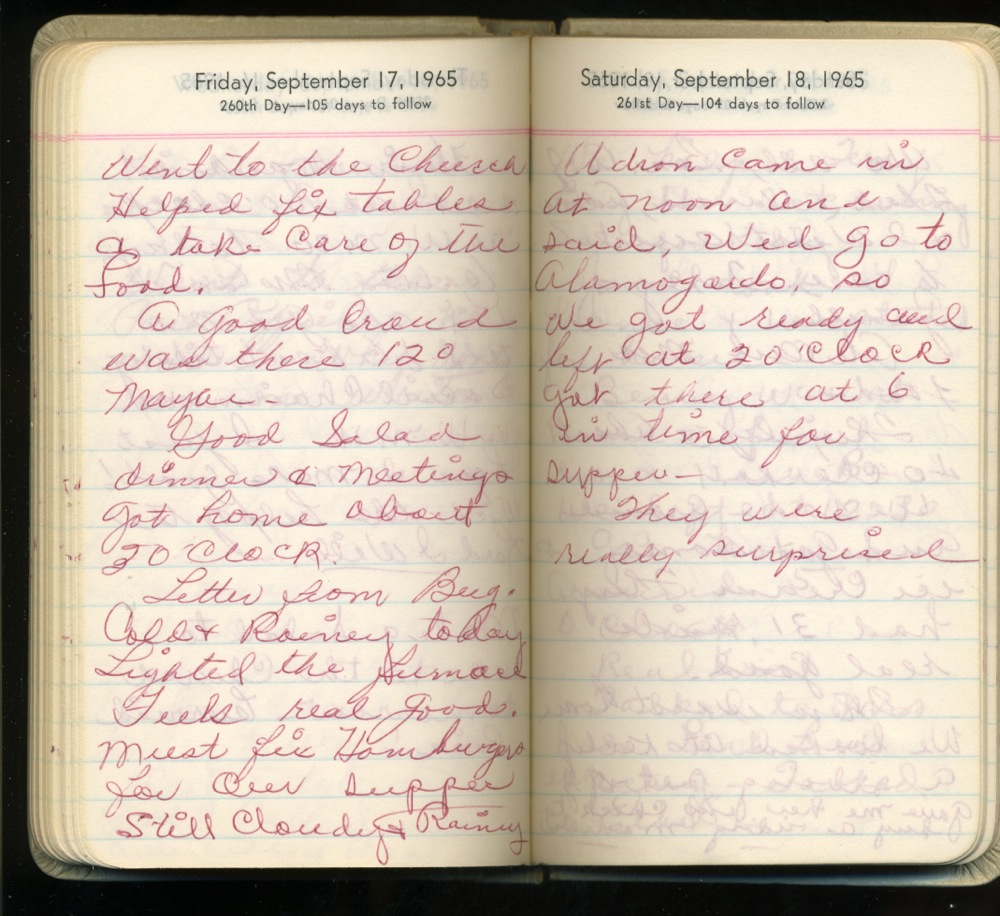 Friday, September 17, 1965
260th Day—105 days to follow
Went to the Church
Helped fix tables
& take Care of the
Food.
A Good Croud
was there 120
Mayae-
Good Salad
dinner & Meetings
got home about
20'Clock.
Letter from Bug.
Cold & Rainey today
Lighted the Furnace
Feels real good.
Must fix Hamburgers
for Our supper
Still Cloudy & Rainey
Saturday, September 18, 1965
261st Day—104 days to follow
Adron Came in
at noon and
said, We'd go to
Alamogardo, so
We got ready and
left at 20'Clock
got there at 6
in time for
supper-
They were
really surprised